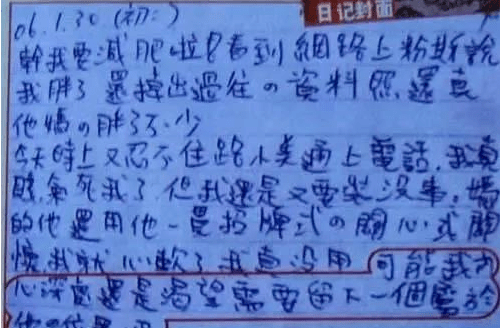 日记封面
06.1.30 (初二)
幹我要減肥啦!看到網路上粉斯說
我胖了 還撐出過往の資料照.還真
他媽の胖了不少
今天晚上又忍不住跟小美通上電話.我真
氣死我了 但我還是又要裝沒事.媽
的他還用他一貫招牌式の關心或關
懷我就心軟了我真沒用 可能我內
心深處還是渴望需要留下一個屬於
他の位置